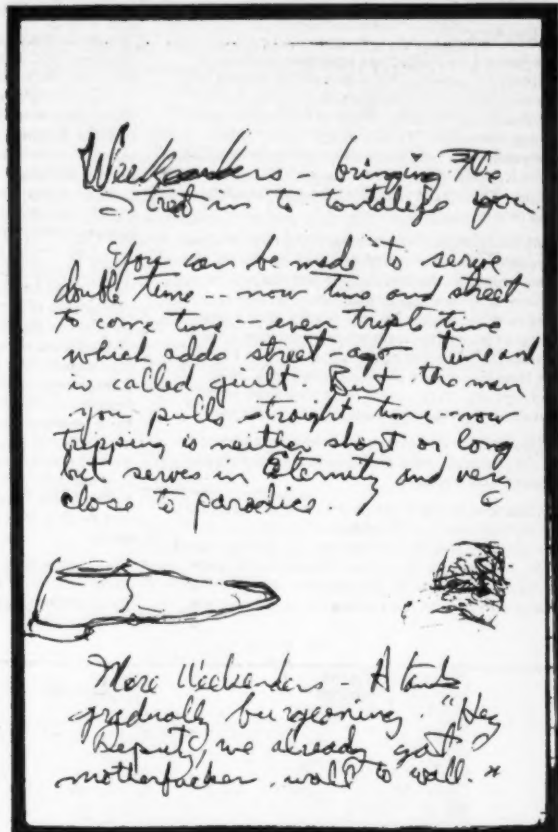 Weekenders - bringing The
Street in to tantalize you.
You can be made to serve
double time -- now time and street
to come time -- even triple time
which adds street-ago time and
is called guilt. But the man
you pulls straight time - now
tripping is neither short or long
but serves in Eternity and very
close to paradice.
More Weekenders - A tank
gradually burgeoning. "Hey
Deputy, we already got
motherfucker wall to wall."